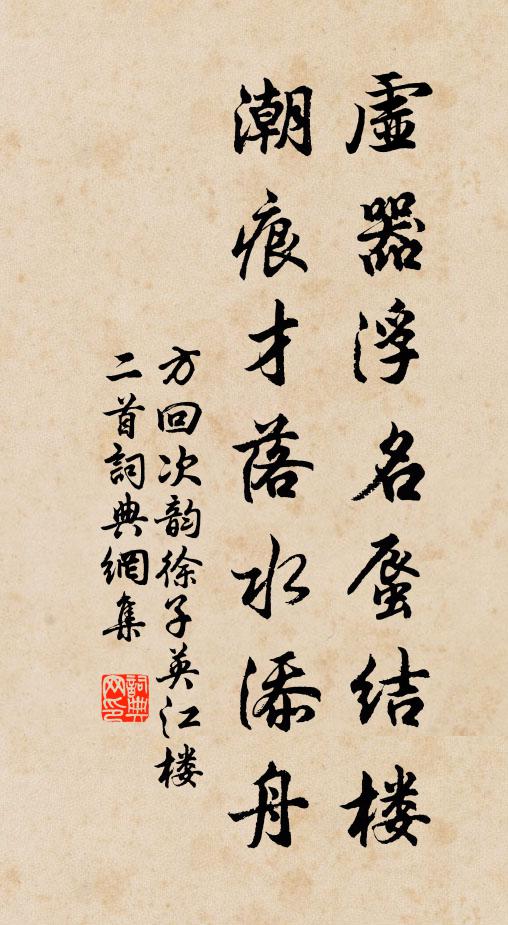 虚器浮名蜃结楼
潮痕才落水添舟
方回次韵徐子英江楼
二首詞典網集
詞典网印